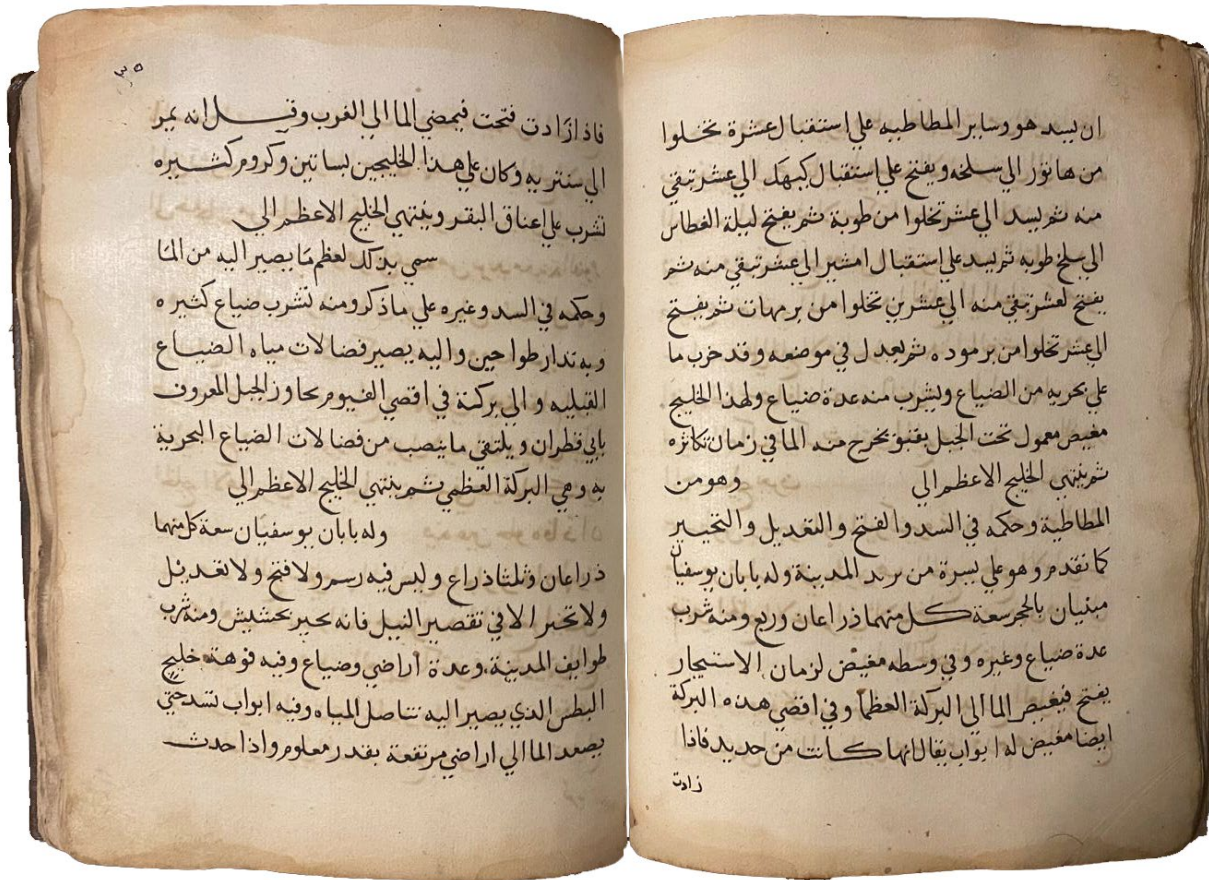 ان يسد هو وساير المطاطيه علي استقبال عشرة تخلوا
من هاتور الي سلخه ويفتح علي استقبال كيهك الي عشر تبقي
منه ثم يسد الي عشر تخلوا من طوبة ثم يفتح ليلة الغطاس
الي سلخ طوبه ثم يسد علي استقبال امشير الي عشر تبقي منه ثم
يفتح لعشر تبقي منه الي عشرين تخلوا من برمهات ثم يفتح
الي عشر تخلوا من برموده ثم يعدل في موضعه وقد خرب ما
علي بحريه من الضياع ويشرب منه عدة ضياع ولهذا الخليج
مغيض معمول تحت الجبل بقبو يخرج منه الما في زمان تكاثره
ثم ينتهي الخليج الاعظم الي وهو من
المطاطية وحكمه في السد والفتح والتعديل والتحيير
كما تقدم وهو علي يسرة من يريد المدينة وله بابان يوسفيان
مبنيان بالحجر سعة كل منهما ذراعان وربع ومنه شرب
عدة ضياع وغيره وفي وسطه مغيض لزمان الاستبحار
يفتح فيغيض الما الي البركة العظما وفي اقصي هذه البركة
ايضا مغيض له ابواب يقال انها كانت من حديد فاذا
زادت
٣٥
فاذا زادت فتحت فيمضي الما الي الغرب وقيل انه يمر
الي سنتريه وكان علي هذا الخليجين بساتين وكروم كثيره
تشرب علي اعناق البقر وينتهي الخليج الاعظم الي
سمي بذلك لعظم ما يصير اليه من الما
وحكمه في السد وغيره علي ما ذكر ومنه تشرب ضياع كثيره
وبه تدار طواحين واليه يصير فضالات مياه الضياع
القبليه والي بركة في اقصي الفيوم تجاوز الجبل المعروف
بابي قطران ويلتقي ما ينصب من فضالات الضياع البحرية
به وهي البركة العظمي ثم ينتهي الخليج الاعظم الي
وله بابان يوسفيان سعة كل منهما
ذراعان وثلثا ذراع وليس فيه رسم ولا فتح ولا تعديل
ولا تحير الا في تقصير النيل فانه يحير بحشيش ومنه شرب
طوايف المدينة وعدة اراضي وضياع وفيه فوهة خليج
البطس الذي يصير اليه تتاصل المياه وفيه ابواب تسد حتي
يصعد الما الي اراضي مرتفعة بقدر معلوم واذا حدث